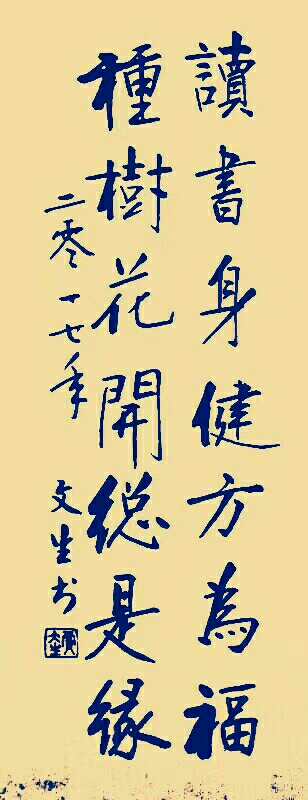 讀書身健方為福
種樹花開總是緣
二零一七年
文生书